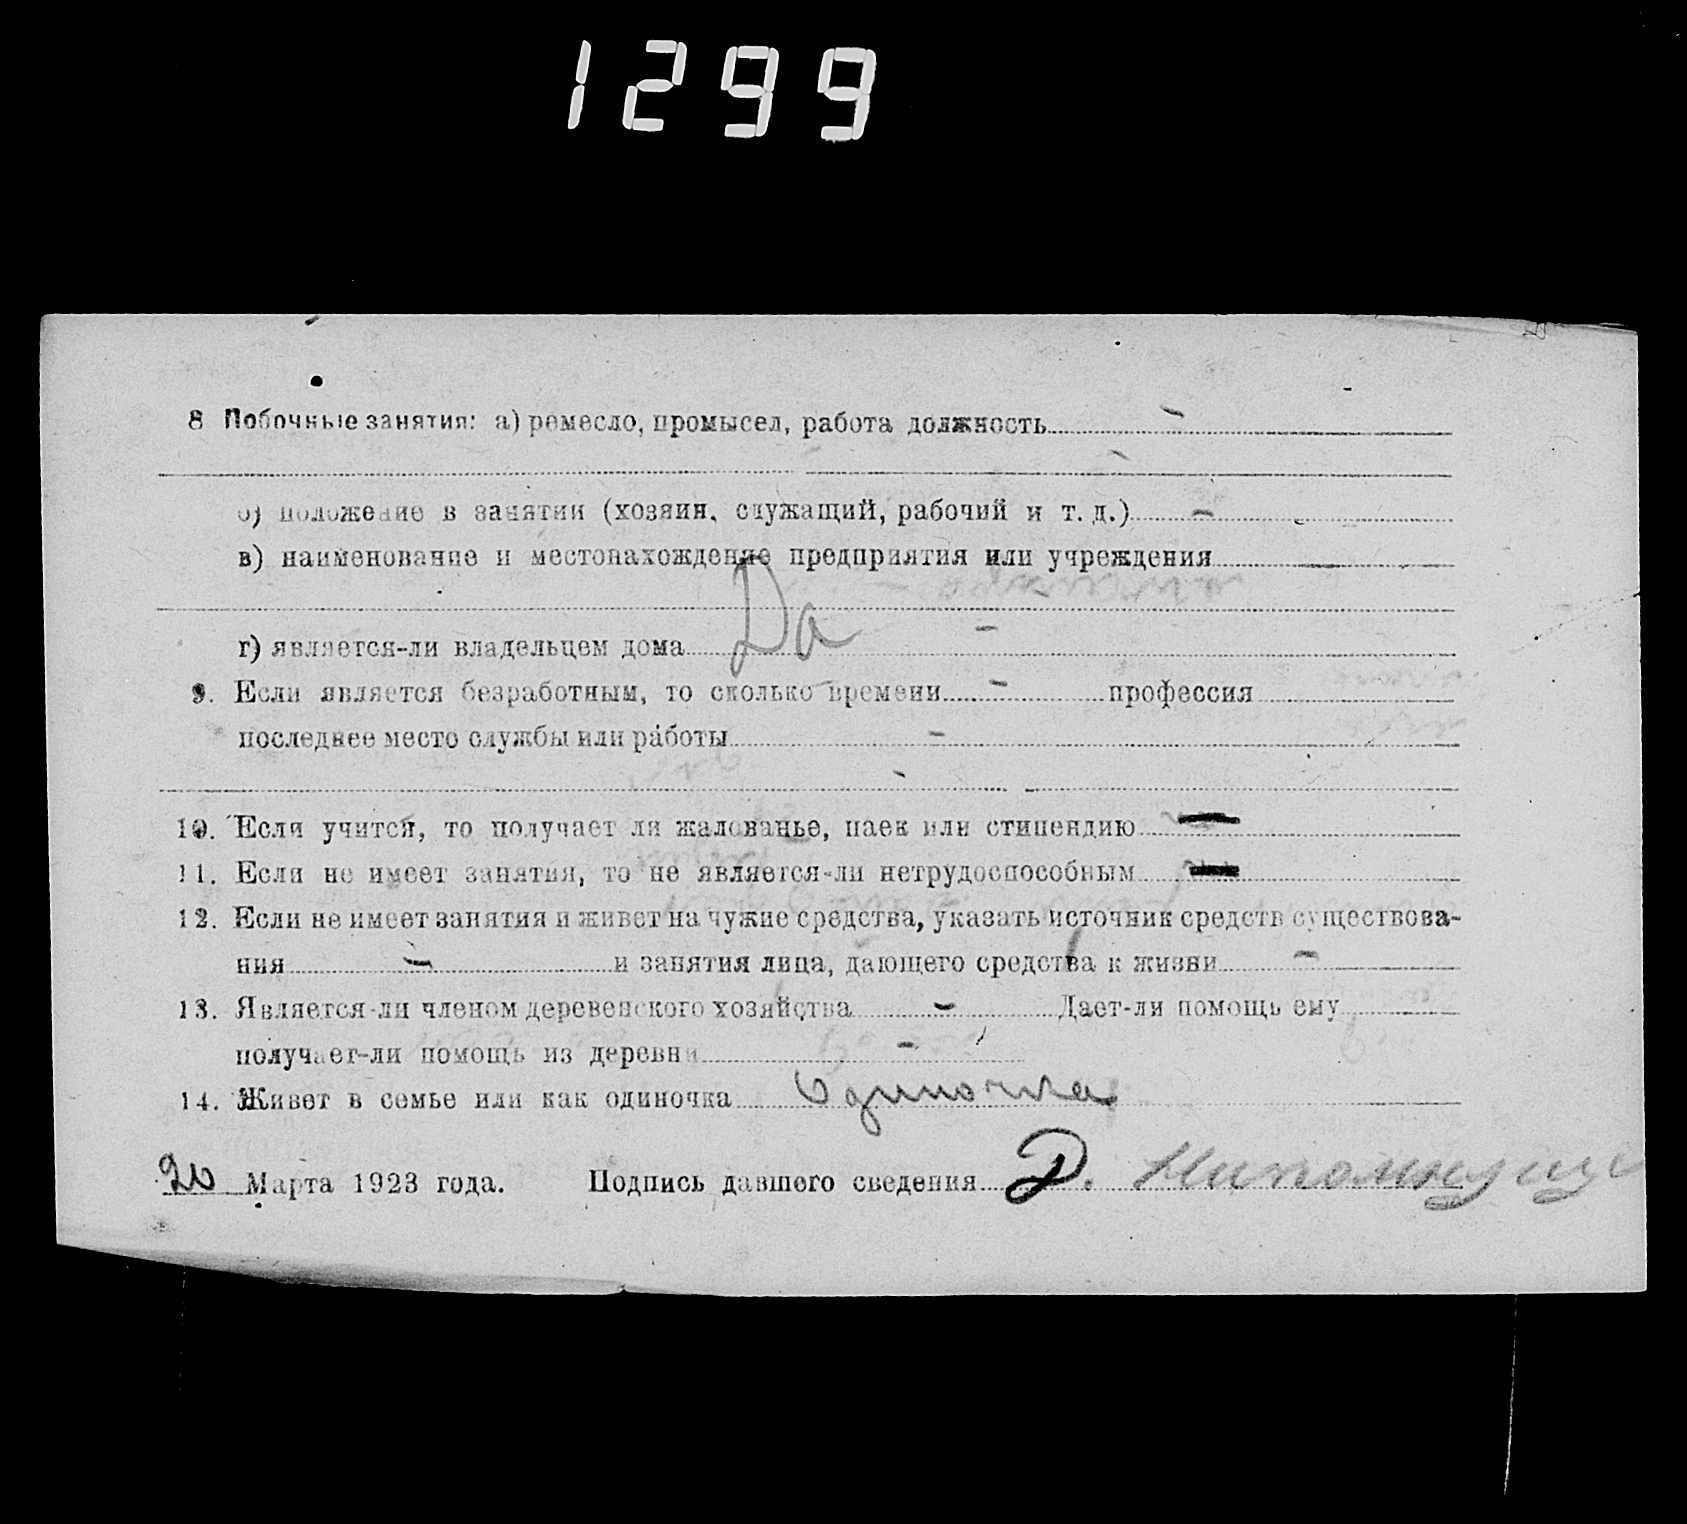 1299
8 Побочные занятия: а) ремесло, промысел, работа должность -
б) положение в занятии (хозяин, служащий, рабочий и т. д.) -
в) наименование и местонахождение предприятия или учреждения
г) является-ли владельцем дома Да -
9. Если является безработным, то сколько времени - профессия
последнее место службы или работы -
10. Если учится, то получает ли жалованье, паек или стипендию —
11. Если не имеет занятия, то не является-ли нетрудоспособным —
12. Если не имеет занятия и живет на чужие средства, указать источник средств существова-
ния - и занятия лица, дающего средства к жизни -
13. Является-ли членом деревенского хозяйства - Дает-ли помощь ему
получает-ли помощь из деревни -
14. Живет в семье или как одиночка Одиночка
20 Марта 1923 года. Подпись давшего сведения Д.